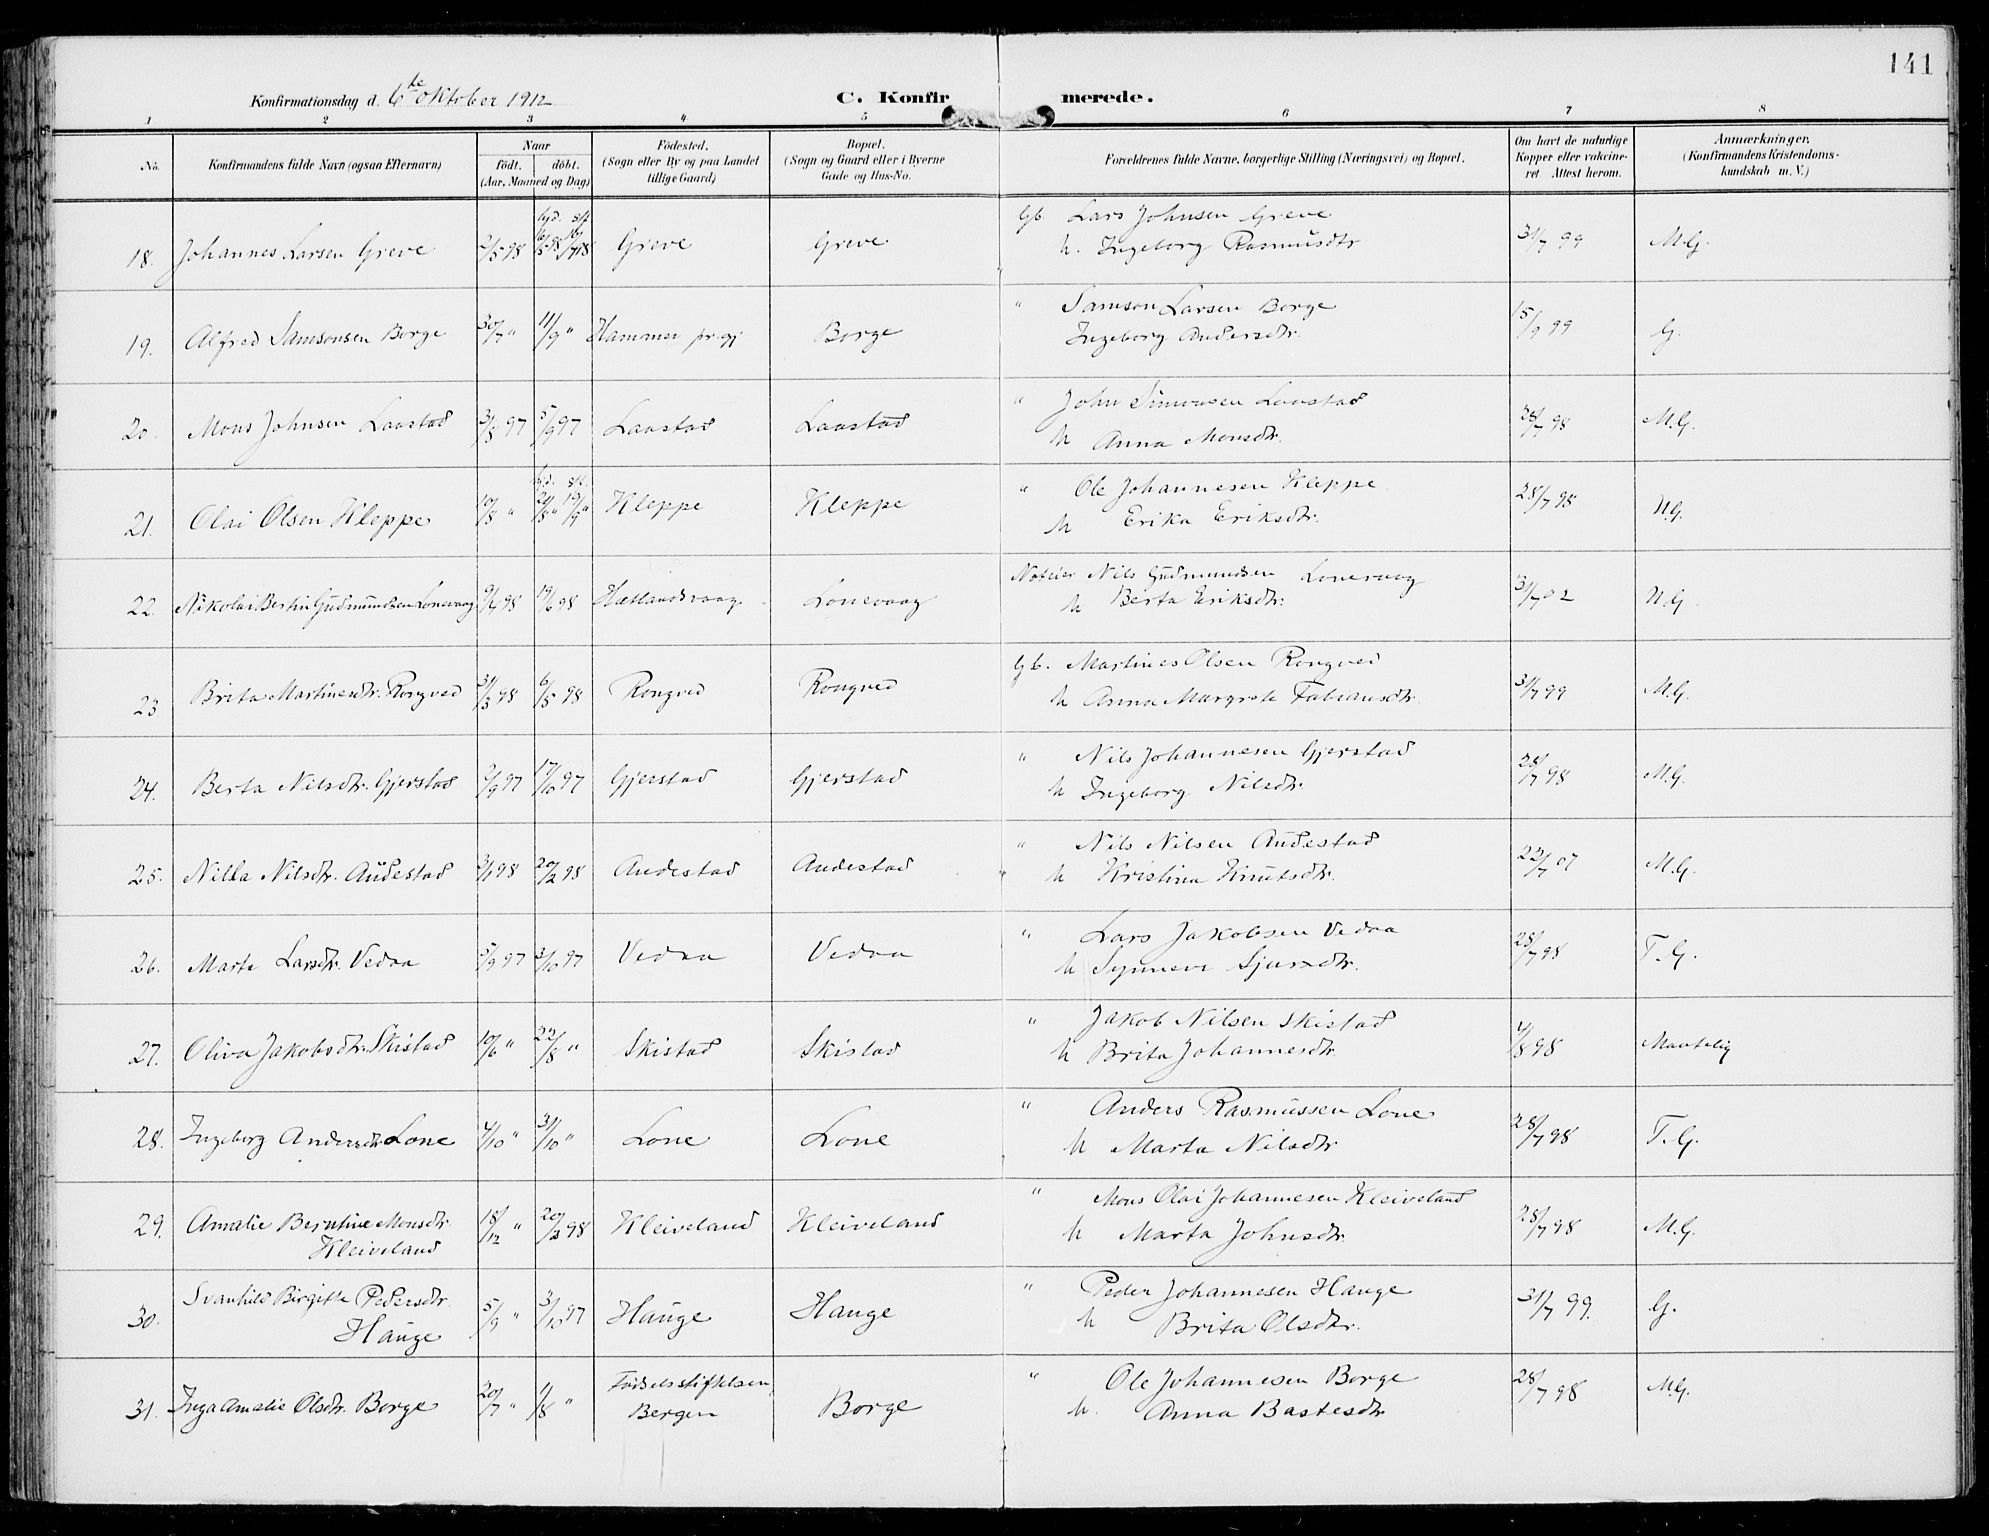 141
Konfirmationsdag d. 6te oktober 1912 C. Konfirmerede.
1 2 3 4 5 6 7 8
No. Konfirmandens fulde Navn (ogsaa Efternavn)
Naar
födt. döbt.
(Aar, Maaned og Dag)
Födested.
(Sogn eller By og paa Landet
tillige Gaard)
Bopæl.
(Sogn og Gaard eller i Byerne
Gade og Hus-No.
Forældrenes fulde Navne, borgerlige Stilling (Næringsvei) og Bopæl.
Om havt de naturlige
Kopper eller vakcine-
ret Attest herom.
Anmærkninger.
(Konfirmandens Kristendoms-
kundskab m. V.)
hjd. st.
Gb. Lars Johnsen Greve
18. Johannes Larsen Greve 2/5 98 Greve Greve 31/7 99 M.G.
h. Ingeborg Rasmusdtr
" Samson Larsen Borge
19. Alfred Samsonsen Borge 30/7 " 11/9 " Hammer pr.gj Borge 15/9 99 G.
Ingeborg Andersdtr.
" John Simonsen Laastad
20. Mons Johnsen Laastad 3/8 97 5/9 97 Laastad Laastad 28/7 98 M.G.
h Anna Monsdtr.
hjd. st.
" Ole Johannesen Kleppe
21. Olai Olsen Kleppe 10/8 " Kleppe Kleppe 28/7 98 N.G.
h Erika Eriksdtr.
Noteier Nils Gudmundsen Lonevaag
22. Nikolai Bertin Gudmundsen Lonevaag 9/4 98 19/6 98 Hætlandsvaag Lonevaag 31/7 02 N.G.
h Berta Eriksdtr.
Gb. Martines Olsen Rongved
23 Brita Martinesdtr. Rongved 31/3 98 6/5 98 Rongved Rongved 31/7 99 M.G.
h Anna Margrete Fabiansdtr.
" Nils Johannesen Gjerstad
24. Berta Nilsdtr. Gjerstad 2/9 97 17/10 97 Gjerstad Gjerstad 28/7 98 M.G.
h Ingeborg Nilsdtr.
" Nils Nilsen Audestad
25. Nilla Nilsdtr. Audestad 3/1 98 20/2 98 Audestad Audestad 22/7 07 M.G.
h Kristina Knutsdtr.
" Lars Jakobsen Vedaa
26. Marta Larsdtr. Vedaa 5/9 97 3/10 97 Vedaa Vedaa 28/7 98 T.G.
h Synneve Sjursdtr.
" Jakob Nilsen Skistad
27. Oliva Jakobsdtr. Skistad 10/6 " 22/8 " Skistad Skistad 4/8 98 Maatelig
h Brita Johannesdtr.
" Anders Rasmussen Lone
28. Ingeborg Andersdtr Lone 4/10 " 31/10 " Lone Lone 28/7 98 T.G.
h Marta Nilsdtr
" Mons Olai Johannesen Kleiveland
29. Amalie Berntine Monsdtr. 18/12 " 20/2 98 Kleiveland Kleiveland 28/7 98 M.G.
Kleiveland h Marta Johnsdtr.
Svanhild Birgitte Pedersdtr. " Peder Johannesen Hauge
30. Hauge 5/9 " 3/10 97 Hauge Hauge 31/7 99. G.
h Brita Olsdtr.
Födselsstiftelsen, " Ole Johannesen Borge
31. Inga Amalie Olsdtr. Borge 20/7 " 1/8 " Bergen Borge 28/7 98 M.G.
h. Anna Bastesdtr